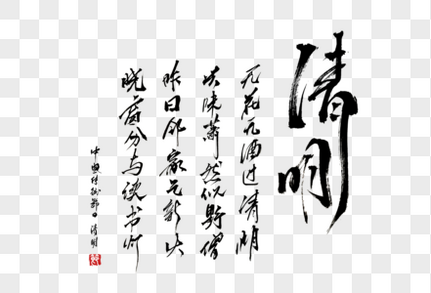 清明
无花无酒过清明
兴味萧然似野僧
昨日邻家乞新火
晓窗分与读书灯
中国传统节日 清明